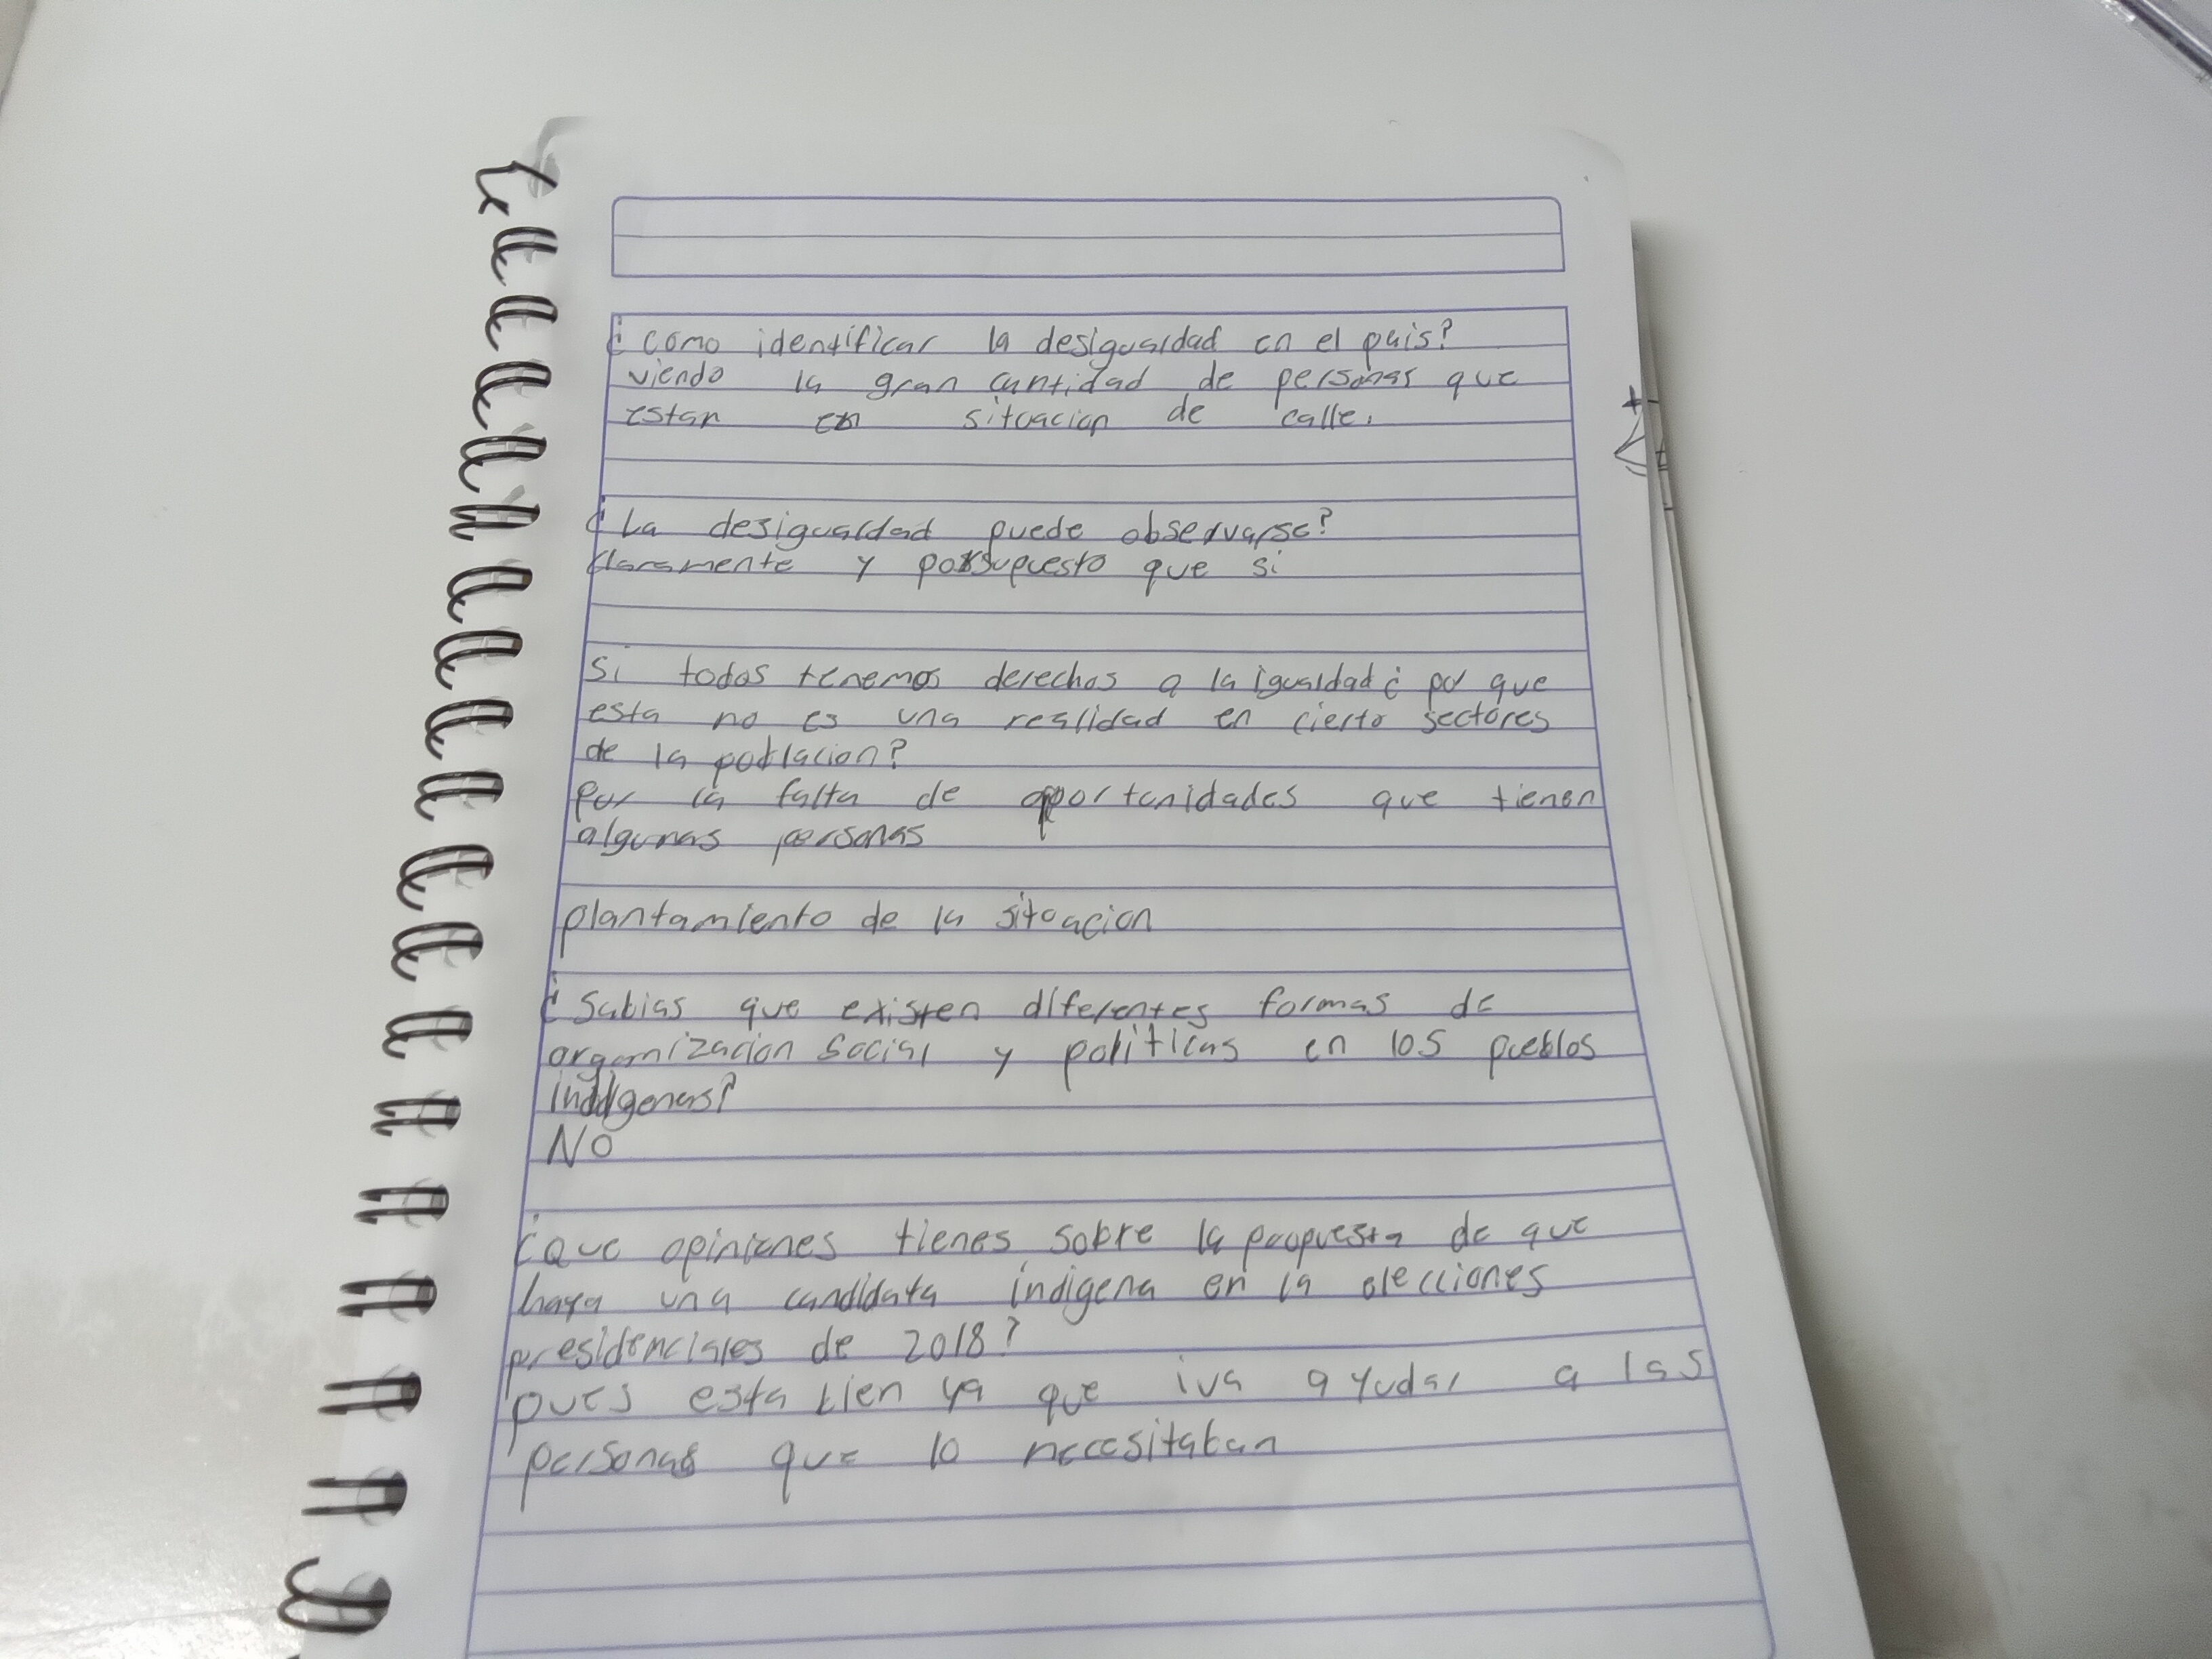 ¿como identificar la desigualdad en el pais?
viendo la gran cantidad de personas que
estan en situacion de calle.
¿La desigualdad puede observarse?
claramente y porsupuesto que si
si todos tenemos derechos a la igualdad ¿por que
esta no es una realidad en cierto sectores
de la poblacion?
por la falta de oportunidades que tienen
algunas personas
plantamiento de la situacion
¿Sabias que existen diferentes formas de
organizacion social y politicas en los pueblos
indigenas?
NO
¿Que opiniones tienes sobre la propuesta de que
haya una candidata indigena en la elecciones
presidenciales de 2018?
pues esta bien ya que iva ayudar a las
personas que lo necesitaban